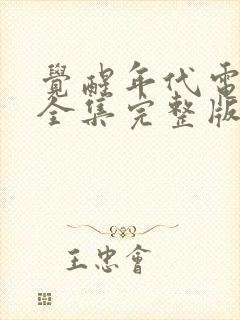 覺醒年代電
全集完整版
王忠會